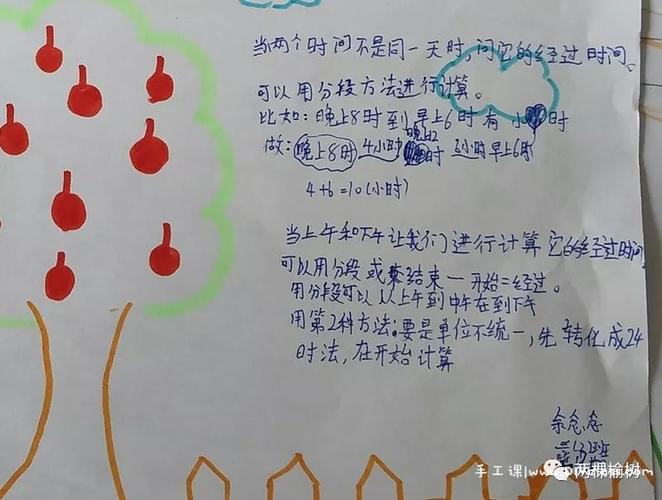 当两个时间不是同一天时,问它的经过时间。
可以用分段方法进行计算。
比如:晚上8时到早上6时有 小时
做:晚上8时 4小时 晚上12时 6小时 早上6时
4+6=10(小时)
当上午和下午让我们进行计算它的经过时间
可以用分段或结束一开始=经过。
用分段可以从上午到中午在到下午
用第2种方法:要是单位不统一,先转化成24
时法,在开始计算
余念念
班
手工课|www. 两棵榆树